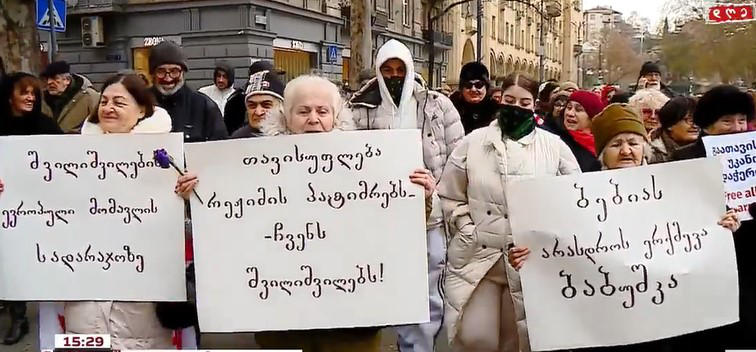 შვილიშვილების
ევროპული მომავლის
სადარაჯოზე
თავისუფლება
რეჟიმის პატიმრებს-
-ჩვენს
შვილიშვილებს!
ბებიას
არასდროს ერქმევა
ბაბუშკა
Free al
15:29